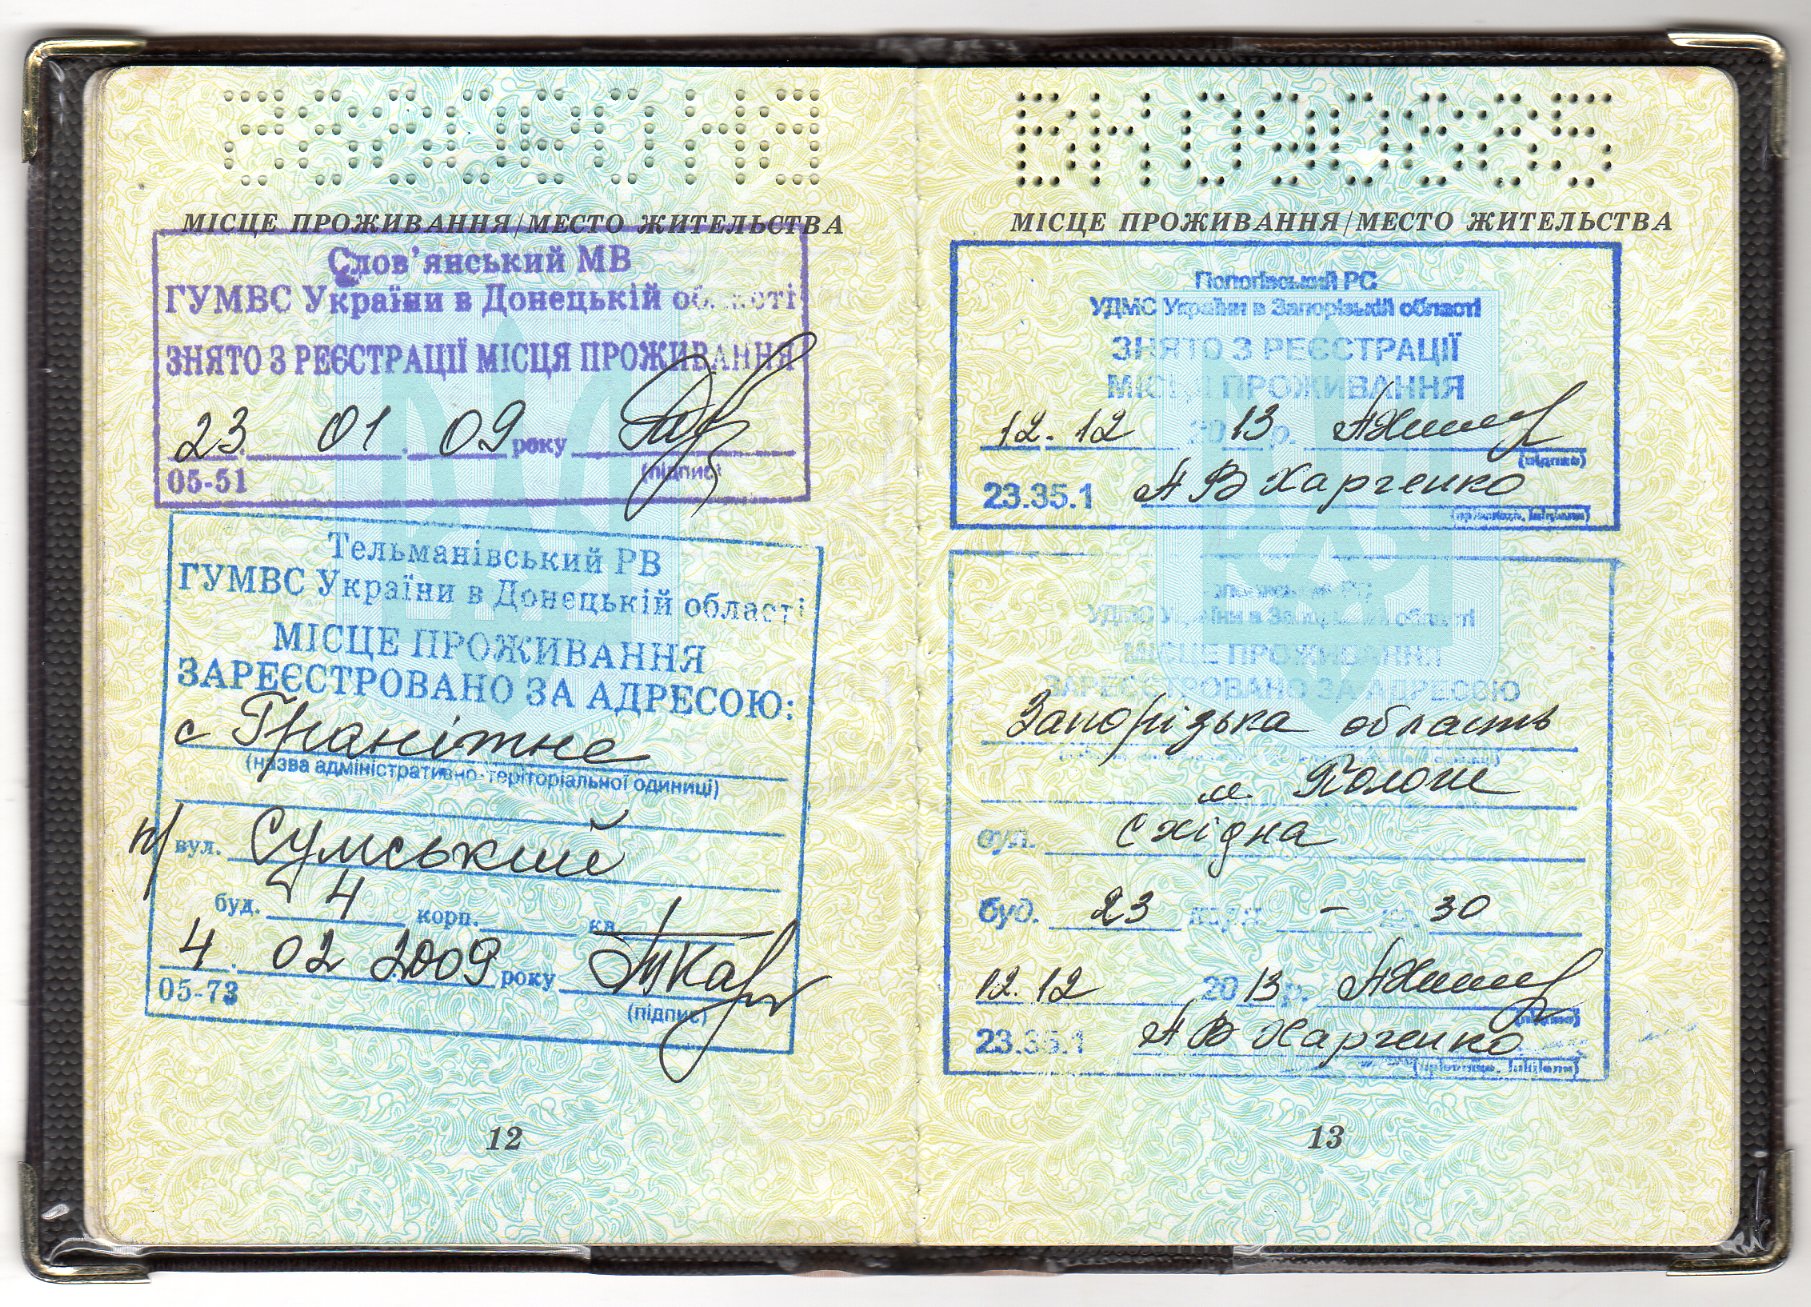 МІСЦЕ ПРОЖИВАННЯ/МЕСТО ЖИТЕЛЬСТВА
Слов'янський МВ
ГУМВС України в Донецькій області
ЗНЯТО З РЕЄСТРАЦІЇ МІСЦЯ ПРОЖИВАННЯ
23. 01. 09 року
(підпис)
05-51
Тельманівський РВ
ГУМВС України в Донецькій області
МІСЦЕ ПРОЖИВАННЯ
ЗАРЕЄСТРОВАНО ЗА АДРЕСОЮ:
с Гранітне
(назва адміністративно-територіальної одиниці)
вул. Сумський
буд. 4 корп. кв.
4. 02 2009 року
05-73
(підпис)
12
ВН090865
МІСЦЕ ПРОЖИВАННЯ/МЕСТО ЖИТЕЛЬСТВА
Пологівський РС
УДМС України в Запорізькій області
ЗНЯТО З РЕЄСТРАЦІЇ
МІСЦЯ ПРОЖИВАННЯ
12. 12 2013 р.
(підпис)
23.35.1 А В Харченко
(прізвище, ініціали)
Пологівський РС
УДМС України в Запорізькій області
МІСЦЕ ПРОЖИВАННЯ
ЗАРЕЄСТРОВАНО ЗА АДРЕСОЮ
Запорізька область
м. Пологи
вул. Східна
буд. 23 корп. – кв. 30
12. 12 2013 р.
(підпис)
23.35.1 А В Харченко
(прізвище, ініціали)
13